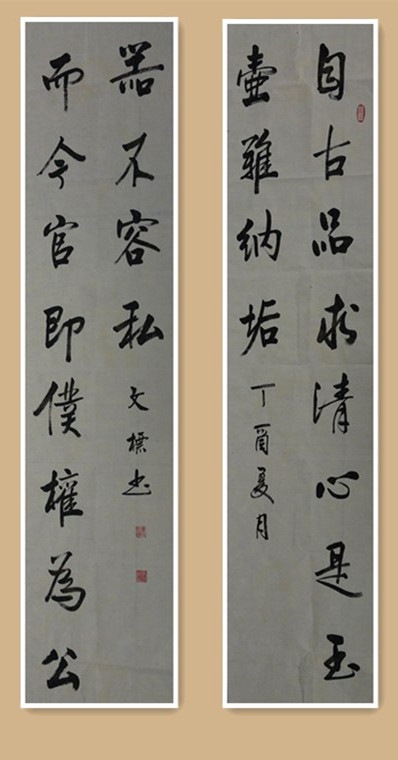 自古品求清心是玉
壺難納垢
丁酉夏月
而今官即僕權為公
器不容私
文標书